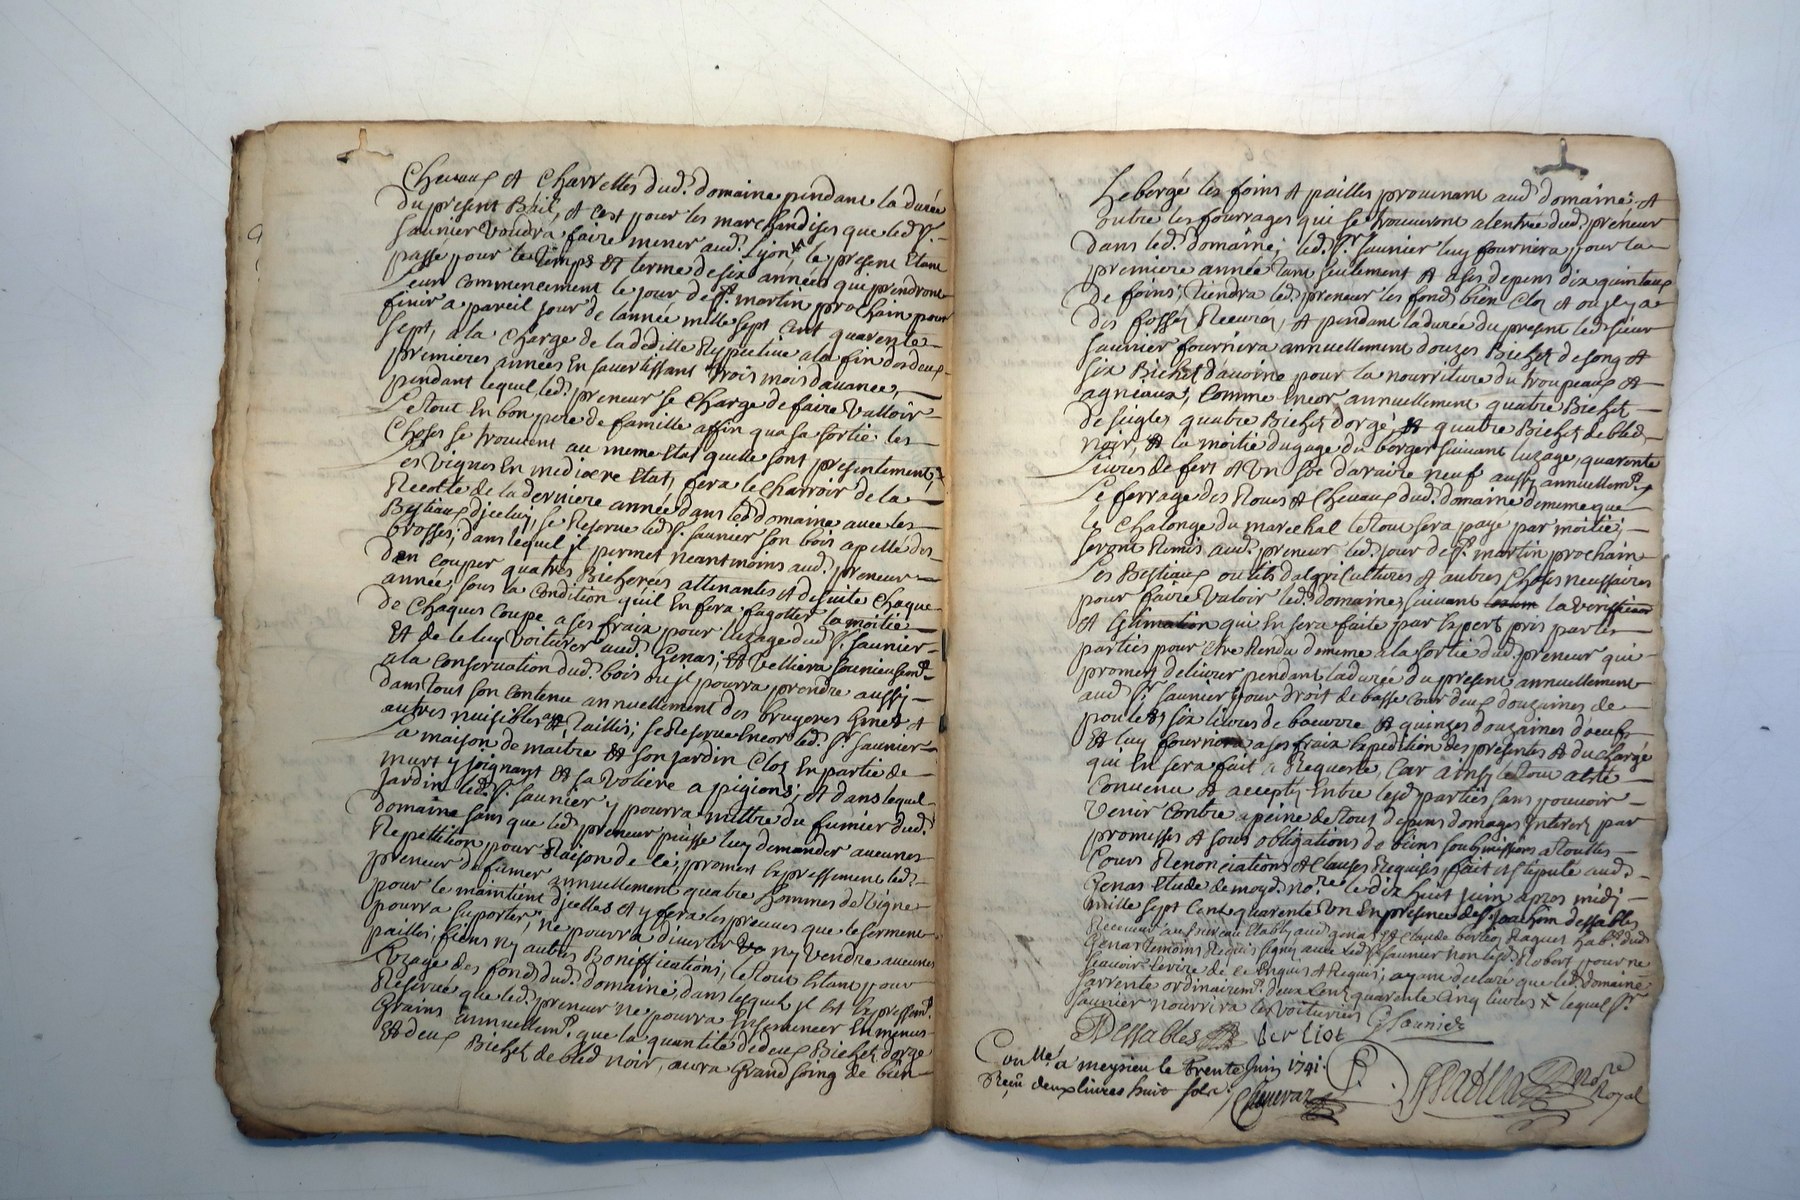 Chevaux et Charrettes dud. domaine pendant la durée
du present Bail, et c'est pour les marchandises que led. Sr.
Saunier voudra faire mener aud. Lyon, le present Etant
passé pour le temps et terme de six années qui prendront
leur commencement le jour de St. martin prochain pour
finir a pareil jour de lannée mille sept cent quarente
sept, a la charge de la déditte Respective a la fin des deux
premieres années En savertissant trois mois davance,
pendant lequel led. preneur se charge de faire valloir
Le tout En bon pere de famille affin qua sa sortie les
Choses se trouvent au meme Etat quelle sont presentement,
Les vignes En mediocre Etat, fera le charroir de la
Recolte de la derniere année dans led. domaine avec les
Bestiaux dicelui, se Reserve led. Sr. Saunier son bois apellé des
brosses, dans lequel jl permet neantmoins aud. preneur
den couper quatres Bicherées attenantes et de suite chaque
année, sous la condition quil En fera fagotter la moitié
de chaques coupe a ses fraix pour lusage dud. Sr. Saunier
Et de le luy voiturer aud. Genas, Et velliera
a la conservation dud. bois ou jl pourra prendre aussi
dans tout son contenu annuellement des bruyeres Genet et
autres nuisibles aux taillis; se Reserve Encor led. Sr. Saunier
La maison de maitre Et son jardin Clos En partie de
murs y joignant Et sa voliere a pigions, et dans lequel
Jardin led. Sr. Saunier y pourra mettre du fumier dud.
domaine sans que led. preneur puisse luy demander aucunes
Repettition pour Raison de ce, promet Expressement led.
preneur de fumer annuellement quatre hommes de vigne
pour le maintient djcelles et y fera les preuves que le serment
pourra suporter, ne pourra divertir ny vendre aucunes
pailles, fiens ny autres Boniffications, le tout Etant pour
Lusage des fonds dud. domaine, dans lesquels jl est Expressemt.
Reservé que led. preneur ne pourra Ensemencer En menus
Grains annuellemt. que la quantité de deux Bichet dorge
Et deux Bichet de bled noir, aura Grand soing de bien
heberger les foins et pailles provenant aud. domaine, et
outre les fourrages qui se trouveront a lentrée dud. preneur
dans led. domaine, led. Sr. Saunier luy fournira pour la
premiere année tant seulement et a ses depens dix quintaux
de foins, tiendra led. preneur les fonds bien Clos et ou jl y a
des fossés Recurés, et pendant la durée du present led. sieur
Saunier fournira annuellement douzes Bichet de song et
six Bichet davoine pour la nourriture du troupeaux et
agneaux, comme Encor annuellement quatre Bichet
de seigles quatre Bichet dorge, et quatre Bichet de bled
noir, et la moitié du gage du berger suivant lusage, quarente
Livres de fert et un soc daraire neuf aussy annuellemt.
Le ferrage des Roues et chevaux dud. domaine de meme que
le chalonge du marechal le tout sera payé par moitié,
seront Remis aud. preneur led. jour de St. martin prochain
Les Bestiaux outils dagricultures et autres choses necessaires
pour faire valoir led. domaine, suivant la veriffication
et Estimation qui En sera faite par Expert pris par les
parties pour etre Rendu de meme a la sortie dud. preneur qui
promet delivrer pendant la durée du present annuellement
aud. Sr. Saunier pour droit de basse cour deux douzaines de
poulets six livres de boeurre et quinzes douzaines doeufs
Et luy fournira a ses fraix Expedition des presentes et du chargé
qui En sera fait a Requerte, Car ainsy le tout a eté
convenu et accepté Entre lesd. parties sans pouvoir
venir contre a peine de tous depens domages Interets par
promesses et sous obligations de biens soubmissions a touttes
Cours Renonciations et clauses Requises, fait et stipulé aud.
Genas Etude de moyd. nore. le dix huit juin apres midi
mille sept cent quarente un En presence de Sr. Joachim dessables
Receveur au bureau Etably aud. genas et Claude berliot
Genas temoins Requis signés avec led. Sr. Saunier non led. Robert pour ne
sçavoir Ecrire de ce Enquis et Requis; ayant declaré que led. domaine
sarrente ordinairemt. deux cent quarente cinq livres × lequel Sr.
Saunier nourrira les voituriers
Dessables Berliot Saunier
Conllé. a meyzieu le trente Juin 1741.
Reçû deux livres huit sols.
nore.
Royal